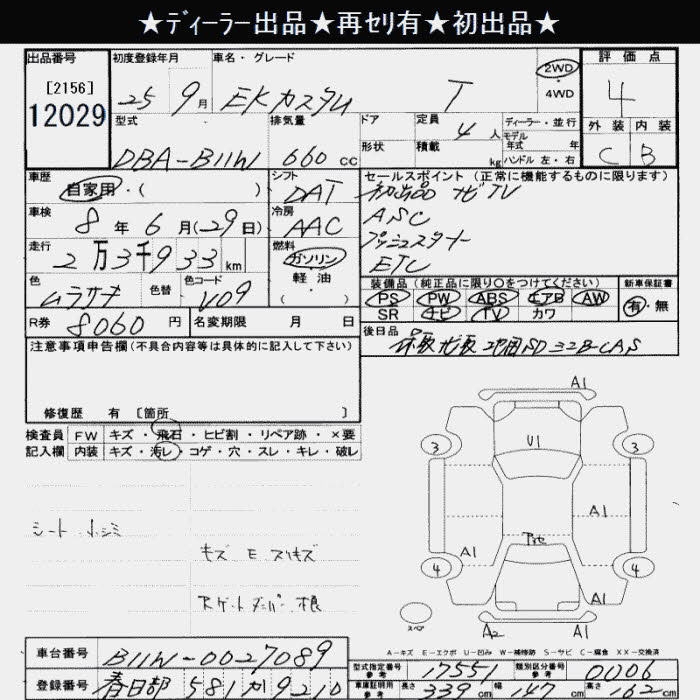 ★ディーラー出品★再セリ有★初出品★
出品番号 初度登録年月 車名・グレード 評価点
[2156] 12029
25 9月 EKカスタム T 2WD・4WD 4
型式 排気量 ドア 定員 ディーラー・並行 外装 内装
DBA-B11W 660cc 4人 モデル年式 年 C B
形状 積載 kg ハンドル 左・右
車歴 シフト セールスポイント(正常に機能するものに限ります)
自家用・( ) DAT 初出品 ナビ TV
車検 冷房 ASC
8年6月(29日) AAC プッシュスタート
走行 燃料 ETC
2万3千933km ガソリン
軽油
( )
色 色替 色コード
ムラサキ V09
装備品(純正品に限り〇をつけてください) 新車保証書
PS PW ABS エアB AW 有・無
SR ナビ TV カワ
R券 8060円 名変期限 月 日
後日品
注意事項申告欄(不具合内容等は具体的に記入して下さい)
修復歴 有 [箇所 ]
検査員 FW キズ・飛石・ヒビ割・リペア跡・×要
記入欄 内装 キズ・汚レ・コゲ・穴・スレ・キレ・破レ
A1
3 U1 3
A1
A1
4 4
A2 A1
スペア
キズ E スリキズ
A-キズ E-エクボ U-凹み W-補修跡 S-サビ C-腐食 XX-交換済
車台番号 B11W-0027089
型式指定番号 参考 17551 類別区分番号 参考 0006
登録番号 春日部 581 か 9210
車庫証明用 参考 長さ 339cm 幅 147cm 高さ 162cm